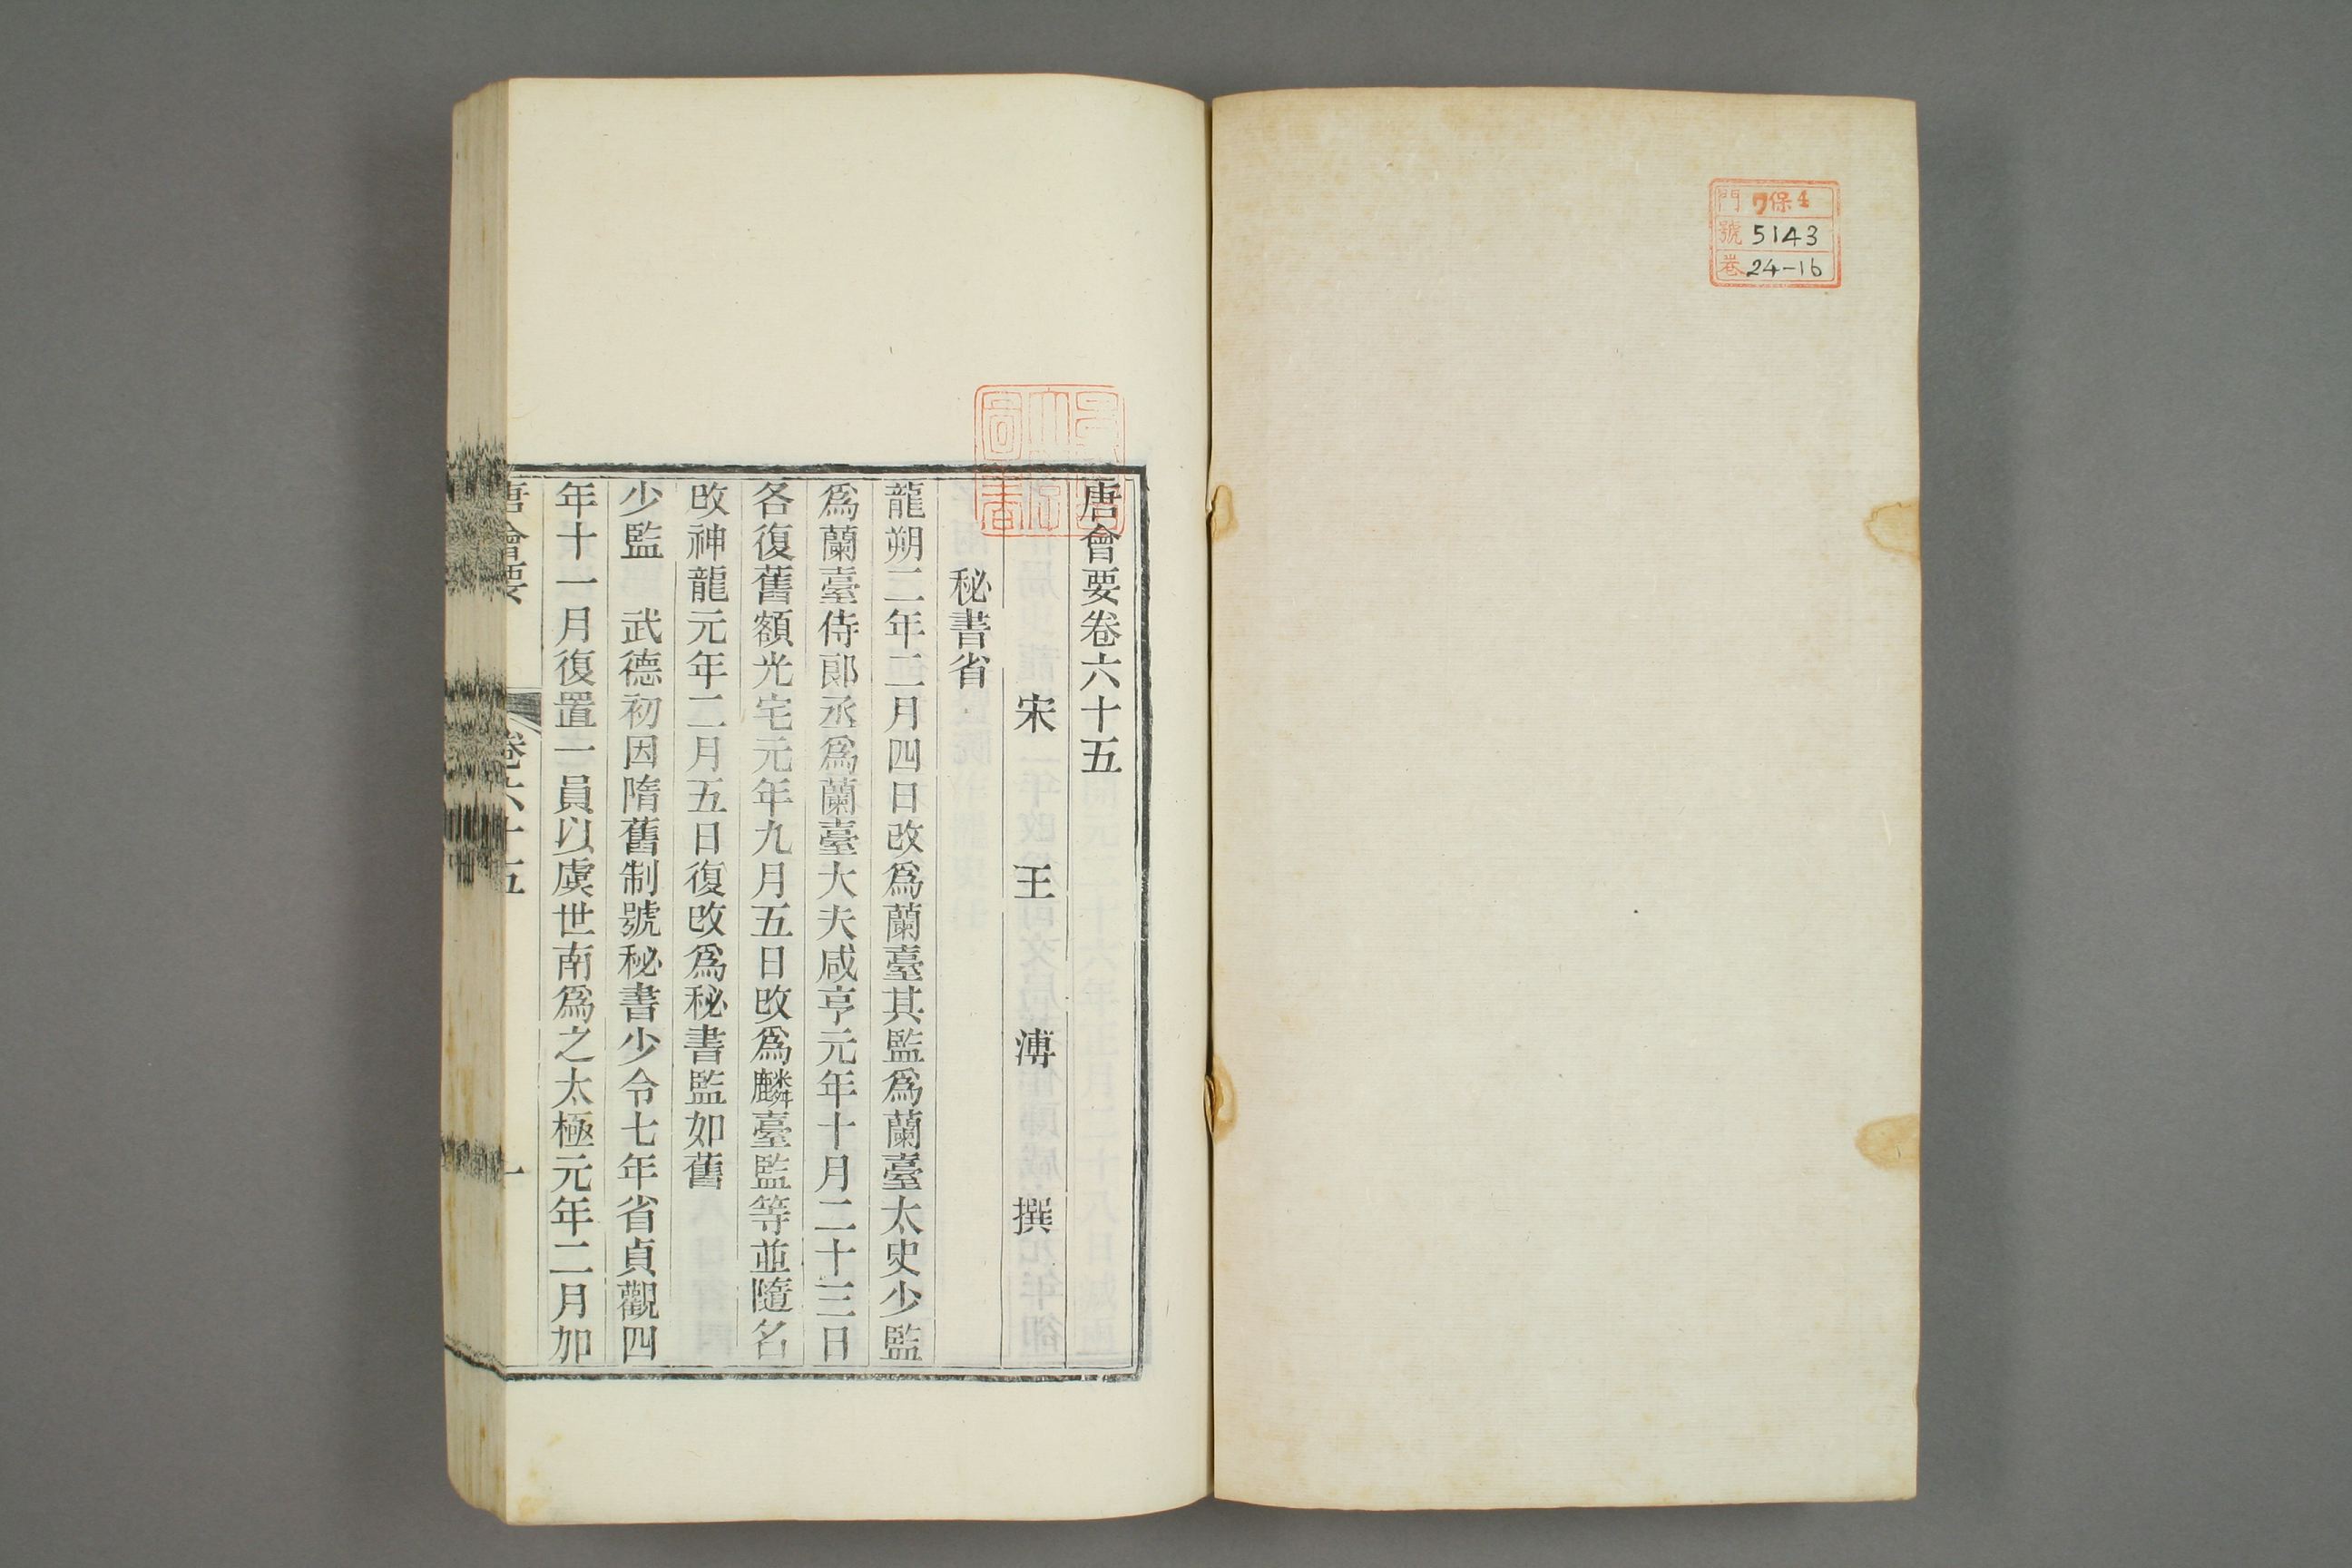 門 7保4
號 5143
巷 24-16
唐會要卷六十五
宋 王 溥 撰
秘書省
龍朔二年二月四日改爲蘭臺其監爲蘭臺太史少監
爲蘭臺侍郞丞爲蘭臺大夫咸亨元年十月二十三日
各復舊額光宅元年九月五日改爲麟臺監等並隨名
改神龍元年二月五日復改爲秘書監如舊
少監 武德初因隋舊制號秘書少令七年省貞觀四
年十一月復置一員以虞世南爲之太極元年二月加
唐會要 卷六十五 一